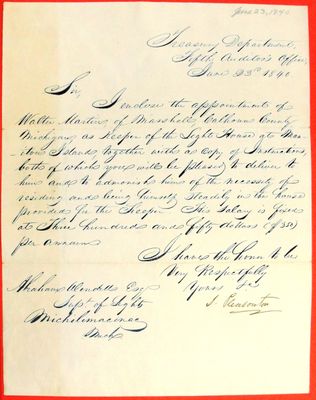 June 23, 1840
Treasury Department,
Fifth Auditor's Office,
June 23d 1840
Sir,
I enclose the appointment of
Walter Martin of Marshall, Calhoun County
Michigan, as Keeper of the Light House at Man-
itou Island, together with a Copy of Instructions,
both of which you will be pleased to deliver to
him and to admonish him of the necessity of
residing and being himself steadily in the house
provided for the Keeper. His Salary is fixed
at Three hundred and fifty dollars ($350)
per annum
I have the honor to be
Very Respectfully
Yours &c
S. Pleasonton
Abraham Wendell Esq
Supt of Lights
Michilimacinac
Mich